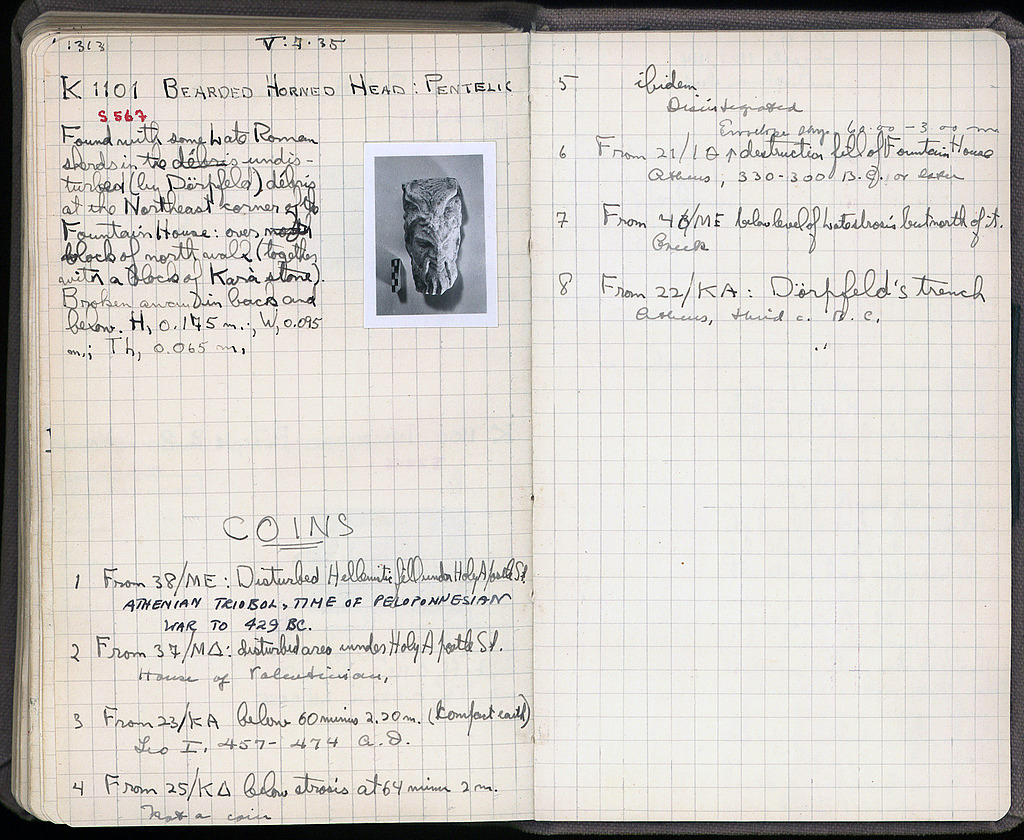 1313
V·7·35
K 1101 BEARDED HORNED HEAD: PENTELIC
S 567
Found with some Late Roman
sherds in the débris undis-
turbed (by Dörpfeld) débris
at the Northeast corner of the
Fountain House: over north
block of north wall (together
with a block of Kará stone).
Broken away in back and
below. H, 0.175 m.; W, 0.095
m.; Th, 0.065 m,
COINS
1 From 38/ME: Disturbed Hellenistic fill under Holy Apostle St.
ATHENIAN TRIOBOL, TIME OF PELOPONNESIAN
WAR TO 429 BC.
2 From 37/MΔ: disturbed area under Holy Apostle St.
House of Valentinian,
3 From 23/KA below 60 minus 2.20 m. (Compact earth)
Leo I, 457-474 A.D.
4 From 25/KΔ below strosis at 64 minus 2 m.
Not a coin
5 ibidem
Disintegrated
Envelope says 60.00 - 3.00 m
6 From 21/ΙΘ destruction fill of Fountain House
Athens, 330-300 B.C. or later
7 From 46/ME below level of Late strosis but north of it.
Greek
8 From 22/KA: Dörpfeld's trench
Athens, third c. B.C.